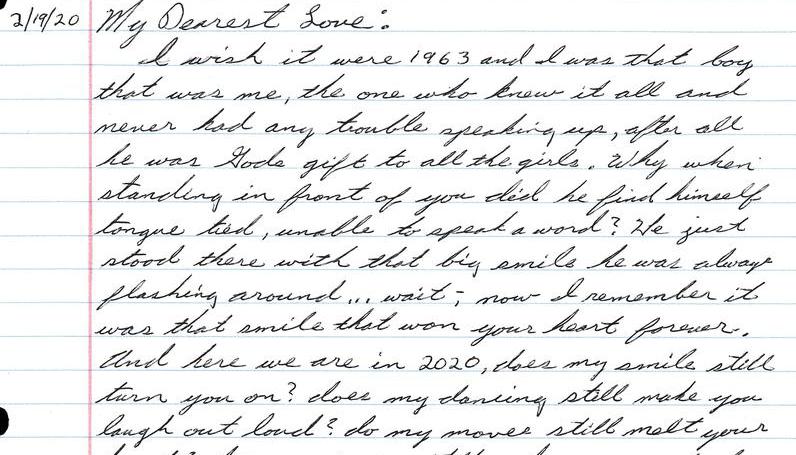 2/19/20 My Dearest Love:
I wish it were 1963 and I was that boy
that was me, the one who knew it all and
never had any trouble speaking up, after all
he was Gods gift to all the girls. Why when
standing in front of you did he find himself
tongue tied, unable to speak a word? He just
stood there with that big smile he was always
flashing around... wait - now I remember it
was that smile that won your heart forever.
And here we are in 2020, does my smile still
turn you on? does my dancing still make you
laugh out loud? do my moves still melt your